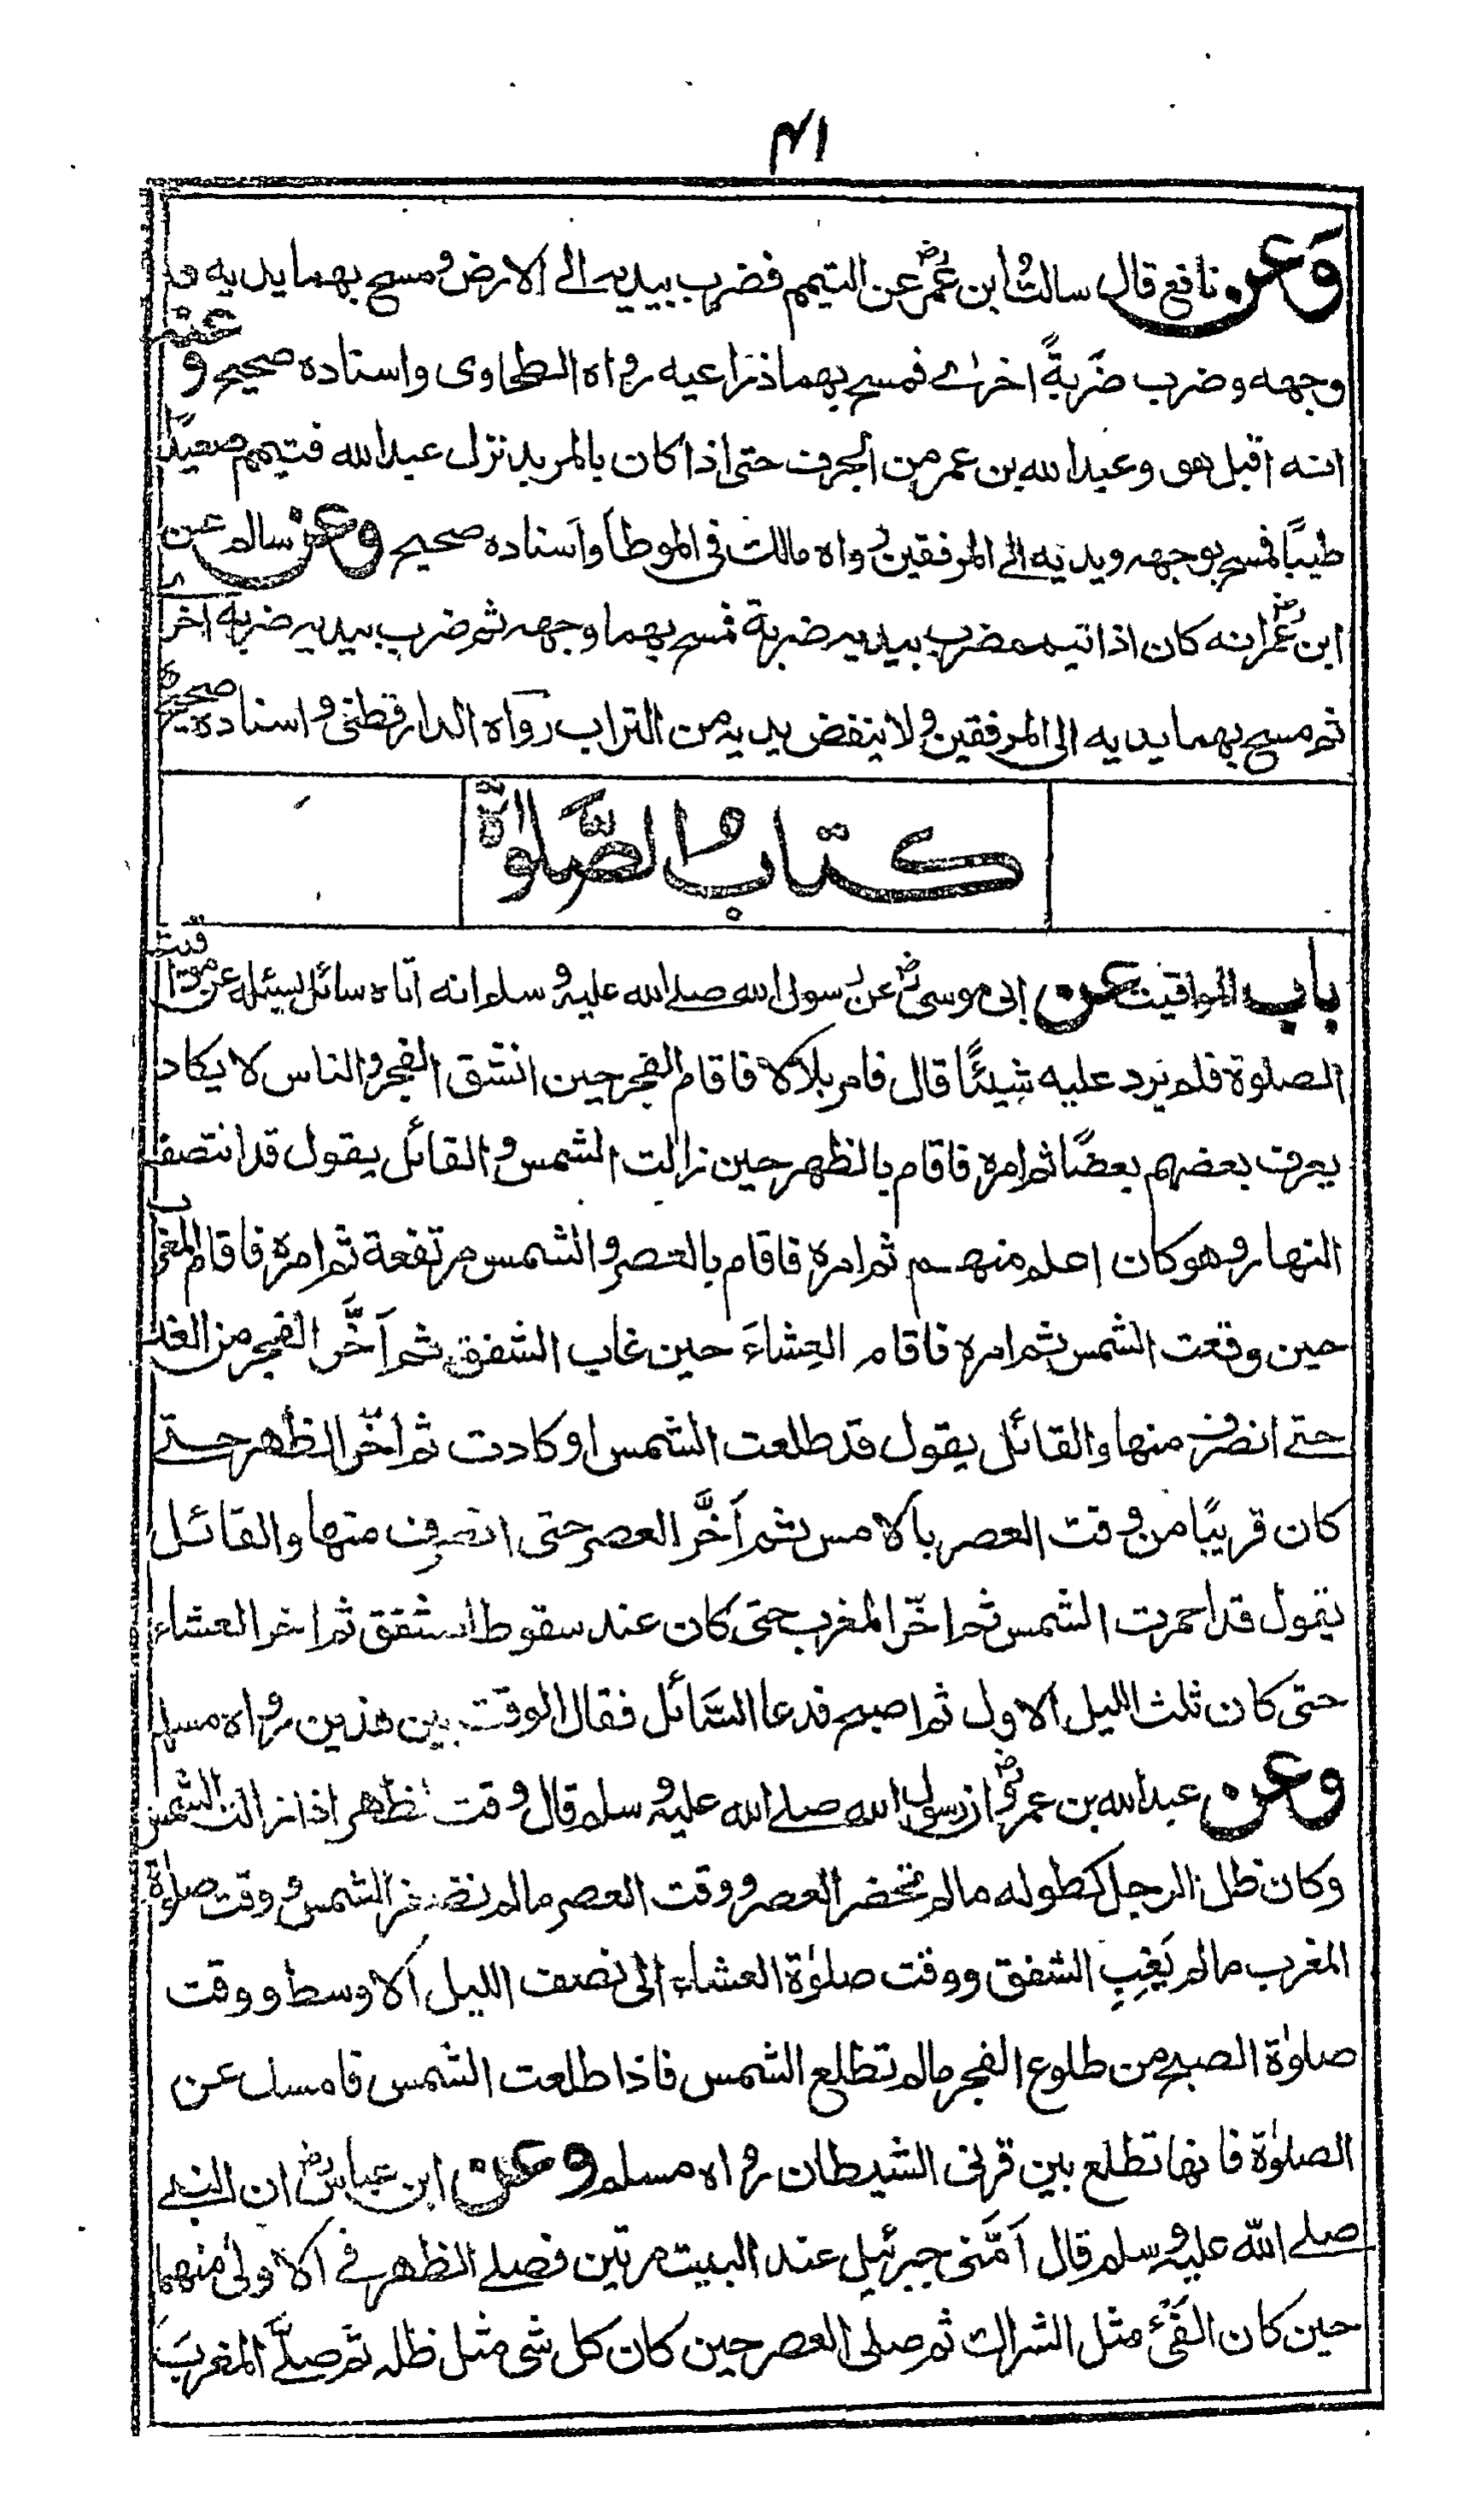 ٤١
وَعن نافع قال سالتُ ابن عُمرؓ عن التيمم فضرب بيديه الے الارض ومسح بهما يديه و
وجهه وضرب ضَربةً اخرٰے فمسح بهما ذراعيه رواه الطحاوى واسناده صحيح وعنه
انه اقبل هو وعبد الله بن عمر من الجرف حتى اذا كان بالمربد نزل عبد الله فتيمم صعيدًا
طيبًا فمسح بوجهه ويديه الى المرفقين رواه مالك فى الموطأ واسناده صحيح وعن سالم عن
ابن عُمرؓ انه كان اذا تيمم ضرب بيديه ضربة فمسح بهما وجهه ثم ضرب بيديه ضربة اخرٰے
ثم مسح بهما يديه الى المرفقين ولا ينفض يديه من التراب رواه الدارقطنى واسناده صحيح
كتابُ الصَّلٰوة
باب المواقيت عن ابى موسىؓ عن رسول الله صلے الله عليه وسلم انه اتاه سائل يسئله عن مواقيت
الصلوة فلم يرد عليه شِيئًا قال فامر بلالا فاقام الفجر حين انشق الفجر والناس لا يكاد
يعرف بعضهم بعضًا ثم امره فاقام بالظهر حين زالت الشمس والقائل يقول قد انتصف
النهار وهو كان اعلم منهم ثم امره فاقام بالعصر والشمس مرتفعة ثم امره فاقام المغرب
حين وقعت الشمس ثم امره فاقام العِشاءَ حين غاب الشفق ثم اَخَّر الفجر من الغد
حتے انصرف منها والقائل يقول قد طلعت الشمس او كادت ثم اخّر الظهر حتے
كان قريبًا من وقت العصر بالامس ثم اَخَّر العصر حتى انصرف منها والقائل
يقول قد احمرت الشمس ثم اخّر المغرب حتى كان عند سقوط الشفق ثم اخر العشاء
حتى كان ثلث الليل الاول ثم اصبح فدعا السَّائل فقال الوقت بين هذين رواه مسلم
وعن عبد الله بن عمروؓ ان رسول الله صلے الله عليه وسلم قال وقت الظهر اذا زالت الشمس
وكان ظل الرجل كطوله مالم تحضر العصر ووقت العصر مالم تصفر الشمس ووقت صلوٰة
المغرب مالم يَغِبِ الشفق ووقت صلوٰة العشاء الى نصف الليل الاوسط ووقت
صلوٰة الصبح من طلوع الفجر مالم تطلع الشمس فاذا طلعت الشمس فامسك عن
الصلوٰة فانها تطلع بين قرنى الشيطان رواه مسلم وعن ابن عباسؓ ان النبے
صلے الله عليه وسلم قال اَمَّنى جبرئيل عند البيت مرتين فصلے الظهر فے الاولى منهما
حين كان الفَئُ مثل الشراك ثم صلى العصر حين كان كل شى مثل ظله ثم صلَّے المغربَ